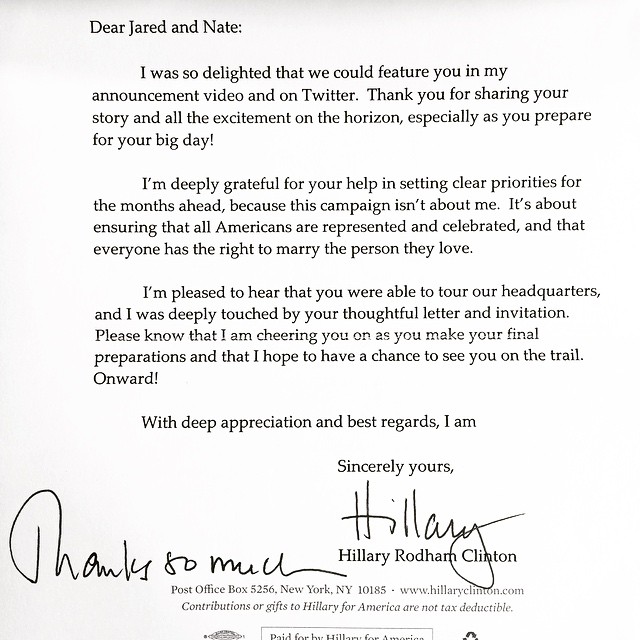 Dear Jared and Nate:
I was so delighted that we could feature you in my
announcement video and on Twitter. Thank you for sharing your
story and all the excitement on the horizon, especially as you prepare
for your big day!
I'm deeply grateful for your help in setting clear priorities for
the months ahead, because this campaign isn't about me. It's about
ensuring that all Americans are represented and celebrated, and that
everyone has the right to marry the person they love.
I'm pleased to hear that you were able to tour our headquarters,
and I was deeply touched by your thoughtful letter and invitation.
Please know that I am cheering you on as you make your final
preparations and that I hope to have a chance to see you on the trail.
Onward!
With deep appreciation and best regards, I am
Sincerely yours,
Hillary
Thanks so much
Hillary Rodham Clinton
Post Office Box 5256, New York, NY 10185 · www.hillaryclinton.com
Contributions or gifts to Hillary for America are not tax deductible.
Paid for by Hillary for America